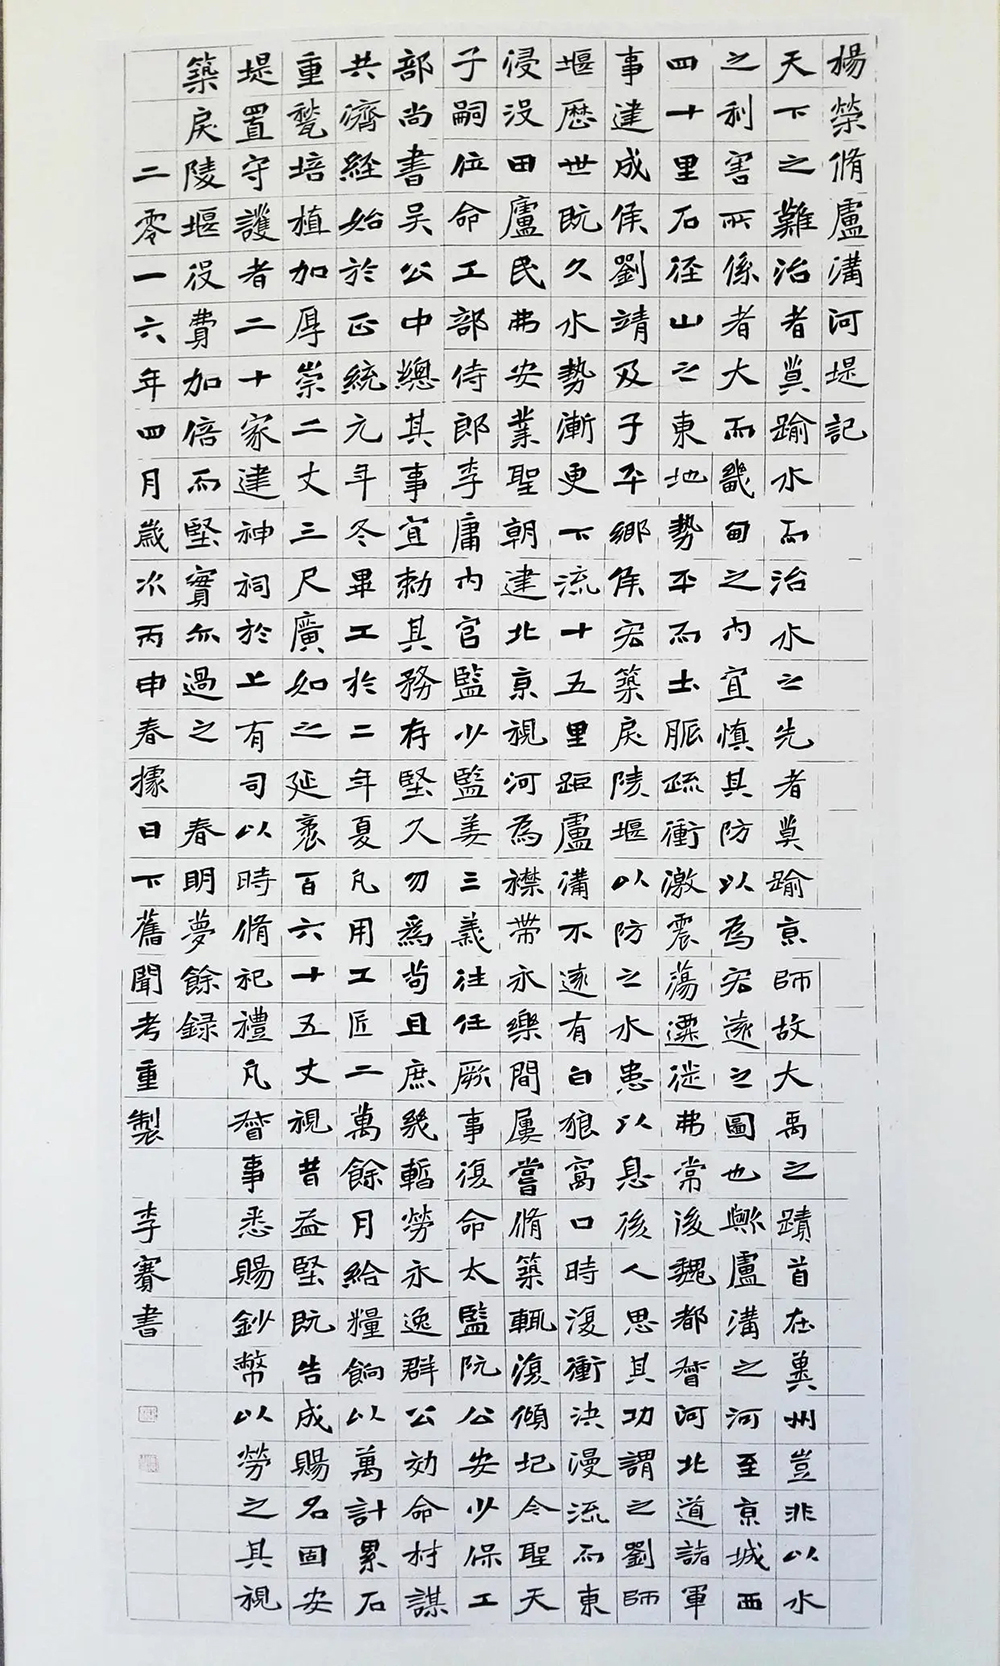 楊榮脩盧溝河堤記
天下之難治者莫踰水而治水之先者莫踰京師故大禹之蹟首在冀州豈非以水
之利害所係者大而畿甸之內宜慎其防以為宏遠之圖也歟盧溝之河至京城西
四十里石徑山之東地勢平而土脈疏衝激震蕩遷徙弗常後魏都督河北道諸軍
事建成侯劉靖及子平鄉侯宏築戾陵堰以防之水患以息後人思其功謂之劉師
堰歷世既久水勢漸更下流十五里距盧溝不遠有白狼窩口時復衝決漫流而東
浸沒田廬民弗安業聖朝建北京視河為襟帶永樂間屢嘗脩築輒復傾圮今聖天
子嗣位命工部侍郎李庸內官監少監姜三義往任厥事復命太監阮公安少保工
部尚書吴公中總其事宜勅其務存堅久勿為苟且庶幾暫勞永逸群公効命材謀
共濟経始於正統元年冬畢工於二年夏凡用工匠二萬餘月給糧餉以萬計累石
重甃培植加厚崇二丈三尺廣如之延袤百六十五丈視昔益堅既告成賜名固安
堤置守護者二十家建神祠於上有司以時脩祀禮凡督事悉賜鈔幣以勞之其視
築戾陵堰役費加倍而堅實亦過之 春明夢餘録
二零一六年四月歲次丙申春據日下舊聞考重製 李賽書